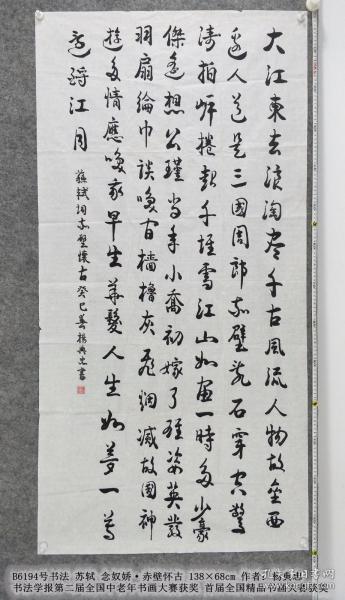 大江東去浪淘盡千古風流人物故壘西
邊人道是三國周郎赤壁亂石穿空驚
濤拍岸捲起千堆雪江山如畫一時多少豪
傑遙想公瑾當年小喬初嫁了雄姿英發
羽扇綸巾談笑間檣櫓灰飛烟滅故國神
遊多情應笑我早生華髮人生如夢一尊
還酹江月
蘇軾詞赤壁懷古癸巳春楊書
B6194号书法 苏轼 念奴娇·赤壁怀古 138×68cm 作者：杨
书法学报第二届全国中老年书画大赛获奖 首届全国精品书画大赛获奖